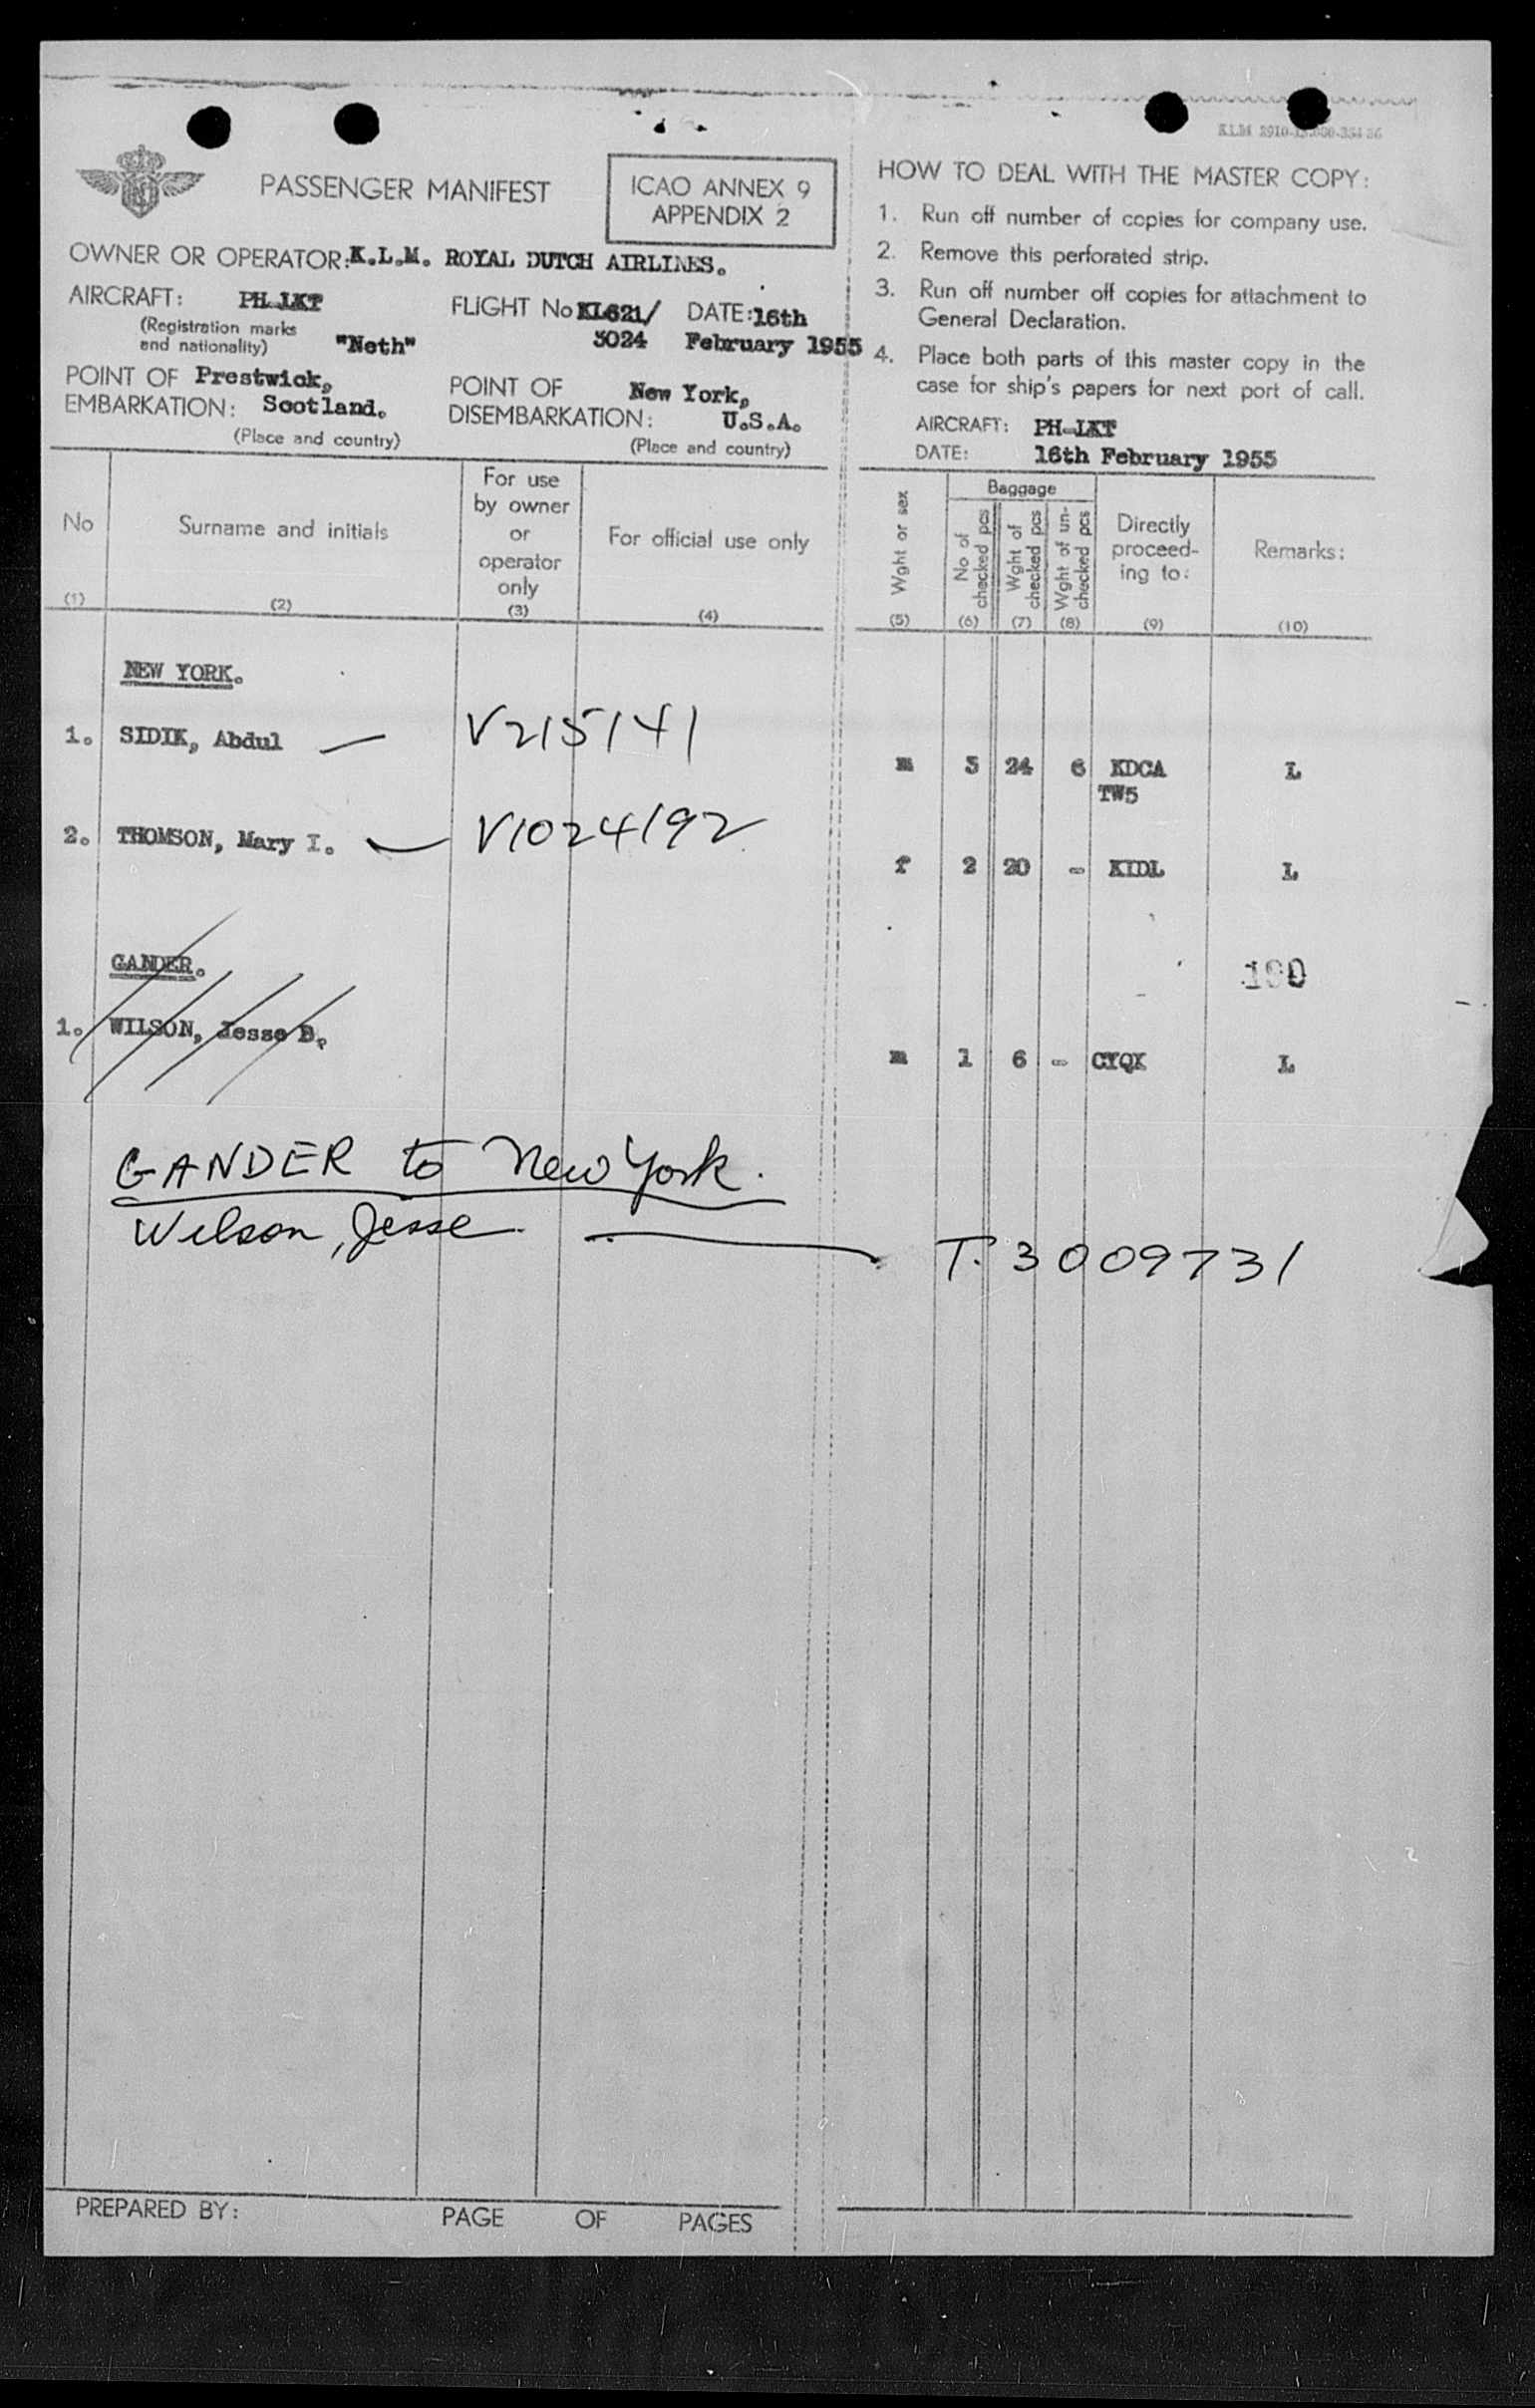 KLM 2910-15.000-354 26
PASSENGER MANIFEST
ICAO ANNEX 9
APPENDIX 2
OWNER OR OPERATOR: K.L.M. ROYAL DUTCH AIRLINES.
AIRCRAFT: PH-LKT
(Registration marks
and nationality) "Neth"
FLIGHT No KL621/
3024
DATE: 16th
February 1955
POINT OF Prestwick,
EMBARKATION: Scotland.
(Place and country)
POINT OF New York,
DISEMBARKATION: U.S.A.
(Place and country)
HOW TO DEAL WITH THE MASTER COPY:
1. Run off number of copies for company use.
2. Remove this perforated strip.
3. Run off number off copies for attachment to
General Declaration.
4. Place both parts of this master copy in the
case for ship's papers for next port of call.
AIRCRAFT: PH-LKT
DATE: 16th February 1955
No
(1)
Surname and initials
(2)
For use
by owner
or
operator
only
(3)
For official use only
(4)
Wght or sex
(5)
Baggage
No of
checked pcs
(6)
Wght of
checked pcs
(7)
Wght of un-
checked pcs
(8)
Directly
proceed-
ing to:
(9)
Remarks:
(10)
NEW YORK.
1. SIDIK, Abdul — V215141
m 3 24 6 KDCA L
TW5
2. THOMSON, Mary I. — V1024192
f 2 20 - KIDL L
GANDER.
190
1. WILSON, Jesse D.
m 1 6 - CYQX L
GANDER to New York.
Wilson, Jesse — T. 3009731
PREPARED BY: PAGE OF PAGES